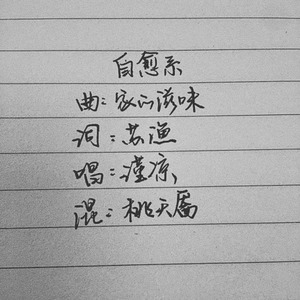 自愈系
曲：家的滋味
词：苏渔
唱：瑾凉
混：桃夭属